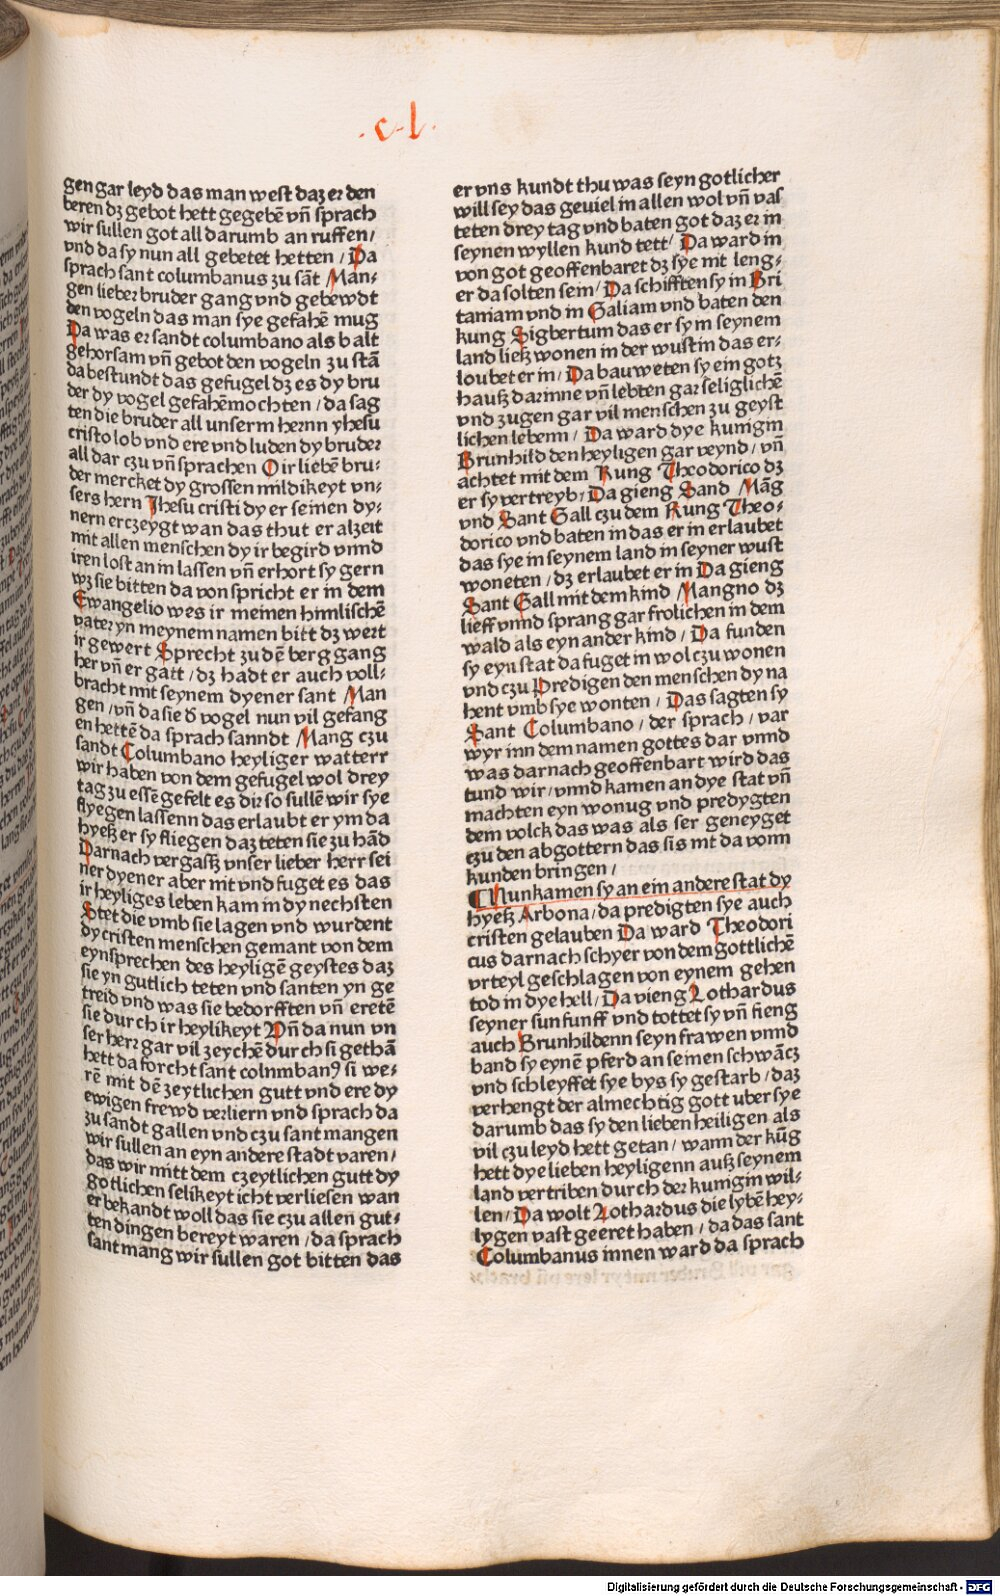 ·c·l·
gen gar leyd das man west daz er den
beren dz gebot hett gegebē vn̄ sprach
wir sullen got all darumb an ruffen/
vnd da sy nun all gebetet hetten/ Da
sprach sant columbanus zu sāt Man⸗
gen lieber bruder gang vnd gebewdt
den vogeln das man sye gefahē mug
Da was er sandt columbano als balt
gehorsam vn̄ gebot den vogeln zu stā
da bestundt das gefugel dz es dy bru
der dy vogel gefahē mochten/ da sag
ten die bruder all unserm hernn yhesu
cristo lob vnd ere vnd luden dy bruder
all dar czu vn̄ sprachen Oir liebē bru⸗
der mercket dy grossen mildikeyt vn⸗
sers hern Jhesu cristi dy er seinen dy⸗
nern erczeygt wan das thut er alzeit
mit allen menschen dy ir begird vnnd
iren lost an in lassen vn̄ erhort sy gern
wz sie bitten da von spricht er in dem
Ewangelio wes ir meinen himlischē
vater yn meynem namen bitt dz wert
ir gewert Sprecht zu dē berg gang
her vn̄ er gatt/ dz hadt er auch voll⸗
bracht mit seynem dyener sant Man
gen/ vn̄ da sie d̄ vogel nun vil gefang
en hettē da sprach sanndt Mang czu
sandt Columbano heyliger watterr
wir haben von dem gefugel wol drey
tag zu essē gefelt es dir so sullē wir sye
flyegen lassenn das erlaubt er ym da
hyesz er sy fliegen daz teten sie zu hād
Darnach vergasz vnser lieber herr sei
ner dyener aber mt vnd fuget es das
ir heyliges leben kam in dy nechsten
Stet die vmb sie lagen vnd wurdent
dy cristen menschen gemant von dem
eynsprechen des heyligē geystes daz
sie yn gutlich teten vnd santen yn ge
treid vnd was sie bedorfften vn̄ eretē
sie durch ir heylikeyt Vn̄ da nun vn
ser herr gar vil zeychē durch si gethā
hett da forcht sant colnmbanꝰ si we⸗
rē mit dē zeytlichen gutt vnd ere dy
ewigen frewd verliern vnd sprach da
zu sandt gallen vnd czu sant mangen
wir sullen an eyn andere stadt varen/
das wir mitt dem czeytlichen gutt dy
gotlichen selikeyt icht verliesen wan
er bekandt woll das sie czu allen gut⸗
ten dingen bereyt waren/ da sprach
sant mang wir sullen got bitten das
er vns kundt thu was seyn gotlicher
will sey das geuiel in allen wol vn̄ vas
teten drey tag vnd baten got daz er in
seynen wyllen kund tett/ Da ward in
von got geoffenbaret dz sye mt leng⸗
er da solten sein/ Da schifften sy in Bri
taniam vnd in Galiam vnd baten den
kung Sigbertum das er sy m seynem
land liesz wonen in der wustin das er⸗
loubet er in/ Da bauweten sy ein gotz
hausz darinne vn̄ lebten gar seliglichē
vnd zugen gar vil menschen zu geyst
lichen lebenn/ Da ward dye kunigin
Brunhild den heyligen gar veynd/ vn̄
achtet mit dem Kung Theodorico dz
er sy vertreyb/ Da gieng Sand Māg
vnd Sant Gall czu dem Kung Theo⸗
dorico vnd baten in das er in erlaubet
das sye in seynem land in seyner wust
woneten/ dz erlaubet er in Da gieng
Sant Gall mit dem kind Mangno dz
lieff vnnd sprang gar frolichen in dem
wald als eyn ander kind/ Da funden
sy eyn stat da fuget in wol czu wonen
vnd czu Predigen den menschen dy na
hent vmb sye wonten/ Das sagten sy
Sant Columbano/ der sprach/ var
wyr inn dem namen gottes dar vnnd
was darnach geoffenbart wird das
tund wir/ vnnd kamen an dye stat vn̄
machten eyn wonug vnd predygten
dem volck das was als ser geneyget
czu den abgottern das sis mt da vonn
kunden bringen/
¶Nun kamen sy an ein andere stat dy
hyesz Arbona/ da predigten sye auch
cristen gelauben Da ward Theodori
cus darnach schyer von dem gottlichē
vrteyl geschlagen von eynem gehen
tod in dye hell/ Da vieng Lothardus
seyner sun funff vnd tottet sy vn̄ fieng
auch Brunhildenn seyn frawen vnnd
band sy eynē pferd an seinen schwācz
vnd schleyffet sye bys sy gestarb/ daz
verhengt der almechtig gott uber sye
darumb das sy den lieben heiligen als
vil czu leyd hett getan/ wann der kūg
hett dye lieben heyligenn ausz seynem
land vertriben durch der kunigin wil⸗
len/ Da wolt Lothardus die lybē hey⸗
lygen vast geeret haben/ da das sant
Columbanus innen ward da sprach
Digitalisierung gefördert durch die Deutsche Forschungsgemeinschaft - DFG